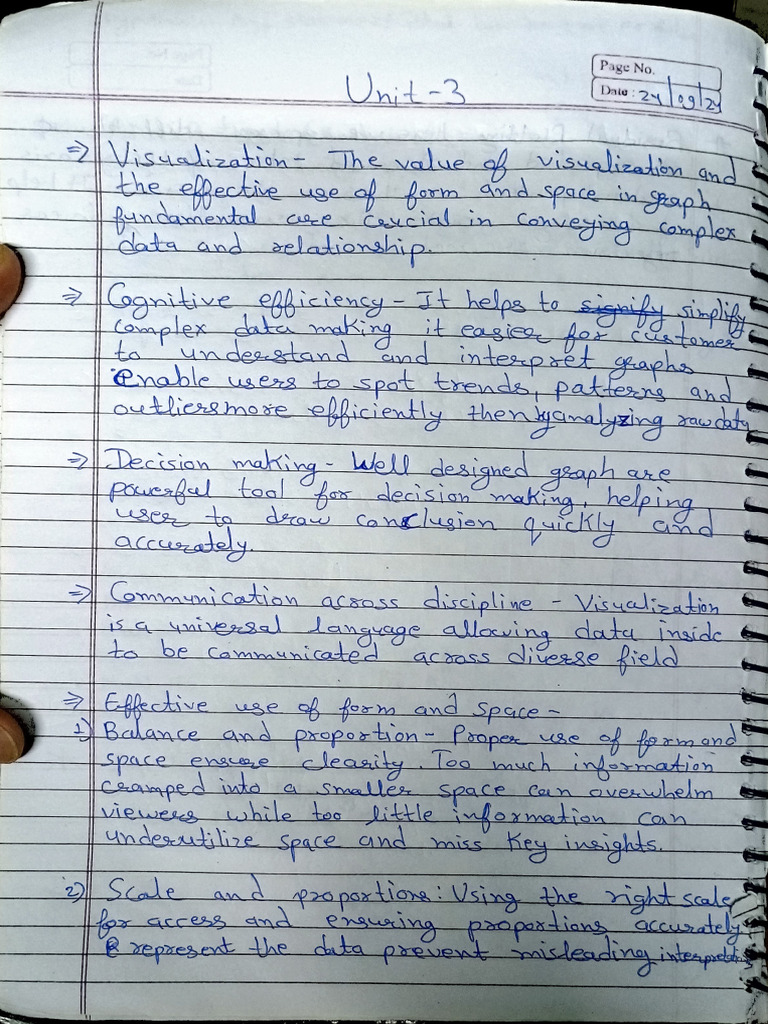 Page No.
Date: 24/09/24
Unit-3
⇒ Visualization - The value of visualization and
the effective use of form and space in graph
fundamental are crucial in conveying complex
data and relationship.
⇒ Cognitive efficiency - It helps to signify simplify
complex data making it easier for customer
to understand and interpret graphs
enable users to spot trends, patterns and
outliers more efficiently then by analyzing raw data
⇒ Decision making - Well designed graph are
powerful tool for decision making, helping
user to draw conclusion quickly and
accurately.
⇒ Communication across discipline - Visualization
is a universal language allowing data inside
to be communicated across diverse field
⇒ Effective use of form and space -
1) Balance and proportion - Proper use of form and
space ensure clearity. Too much information
cramped into a smaller space can overwhelm
viewers while too little information can
underutilize space and miss key insights.
2) Scale and proportions: Using the right scale
for access and ensuring proportions accurately
represent the data prevent misleading